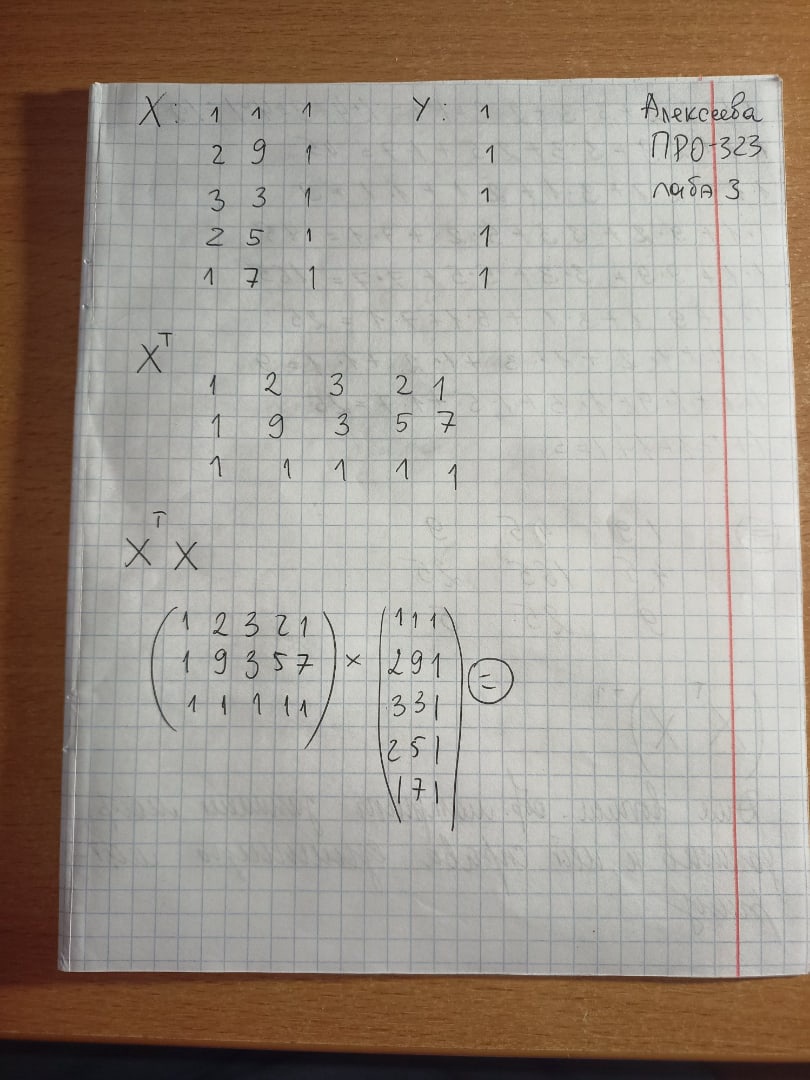 X: 1 1 1 Y: 1 Алексеева
2 9 1 1 ПРО-323
3 3 1 1 лаба 3
2 5 1 1
1 7 1 1
X^T
1 2 3 2 1
1 9 3 5 7
1 1 1 1 1
X^T X
( 1 2 3 2 1 ) × ( 1 1 1 ) =
1 9 3 5 7 2 9 1
1 1 1 1 1 3 3 1
2 5 1
1 7 1